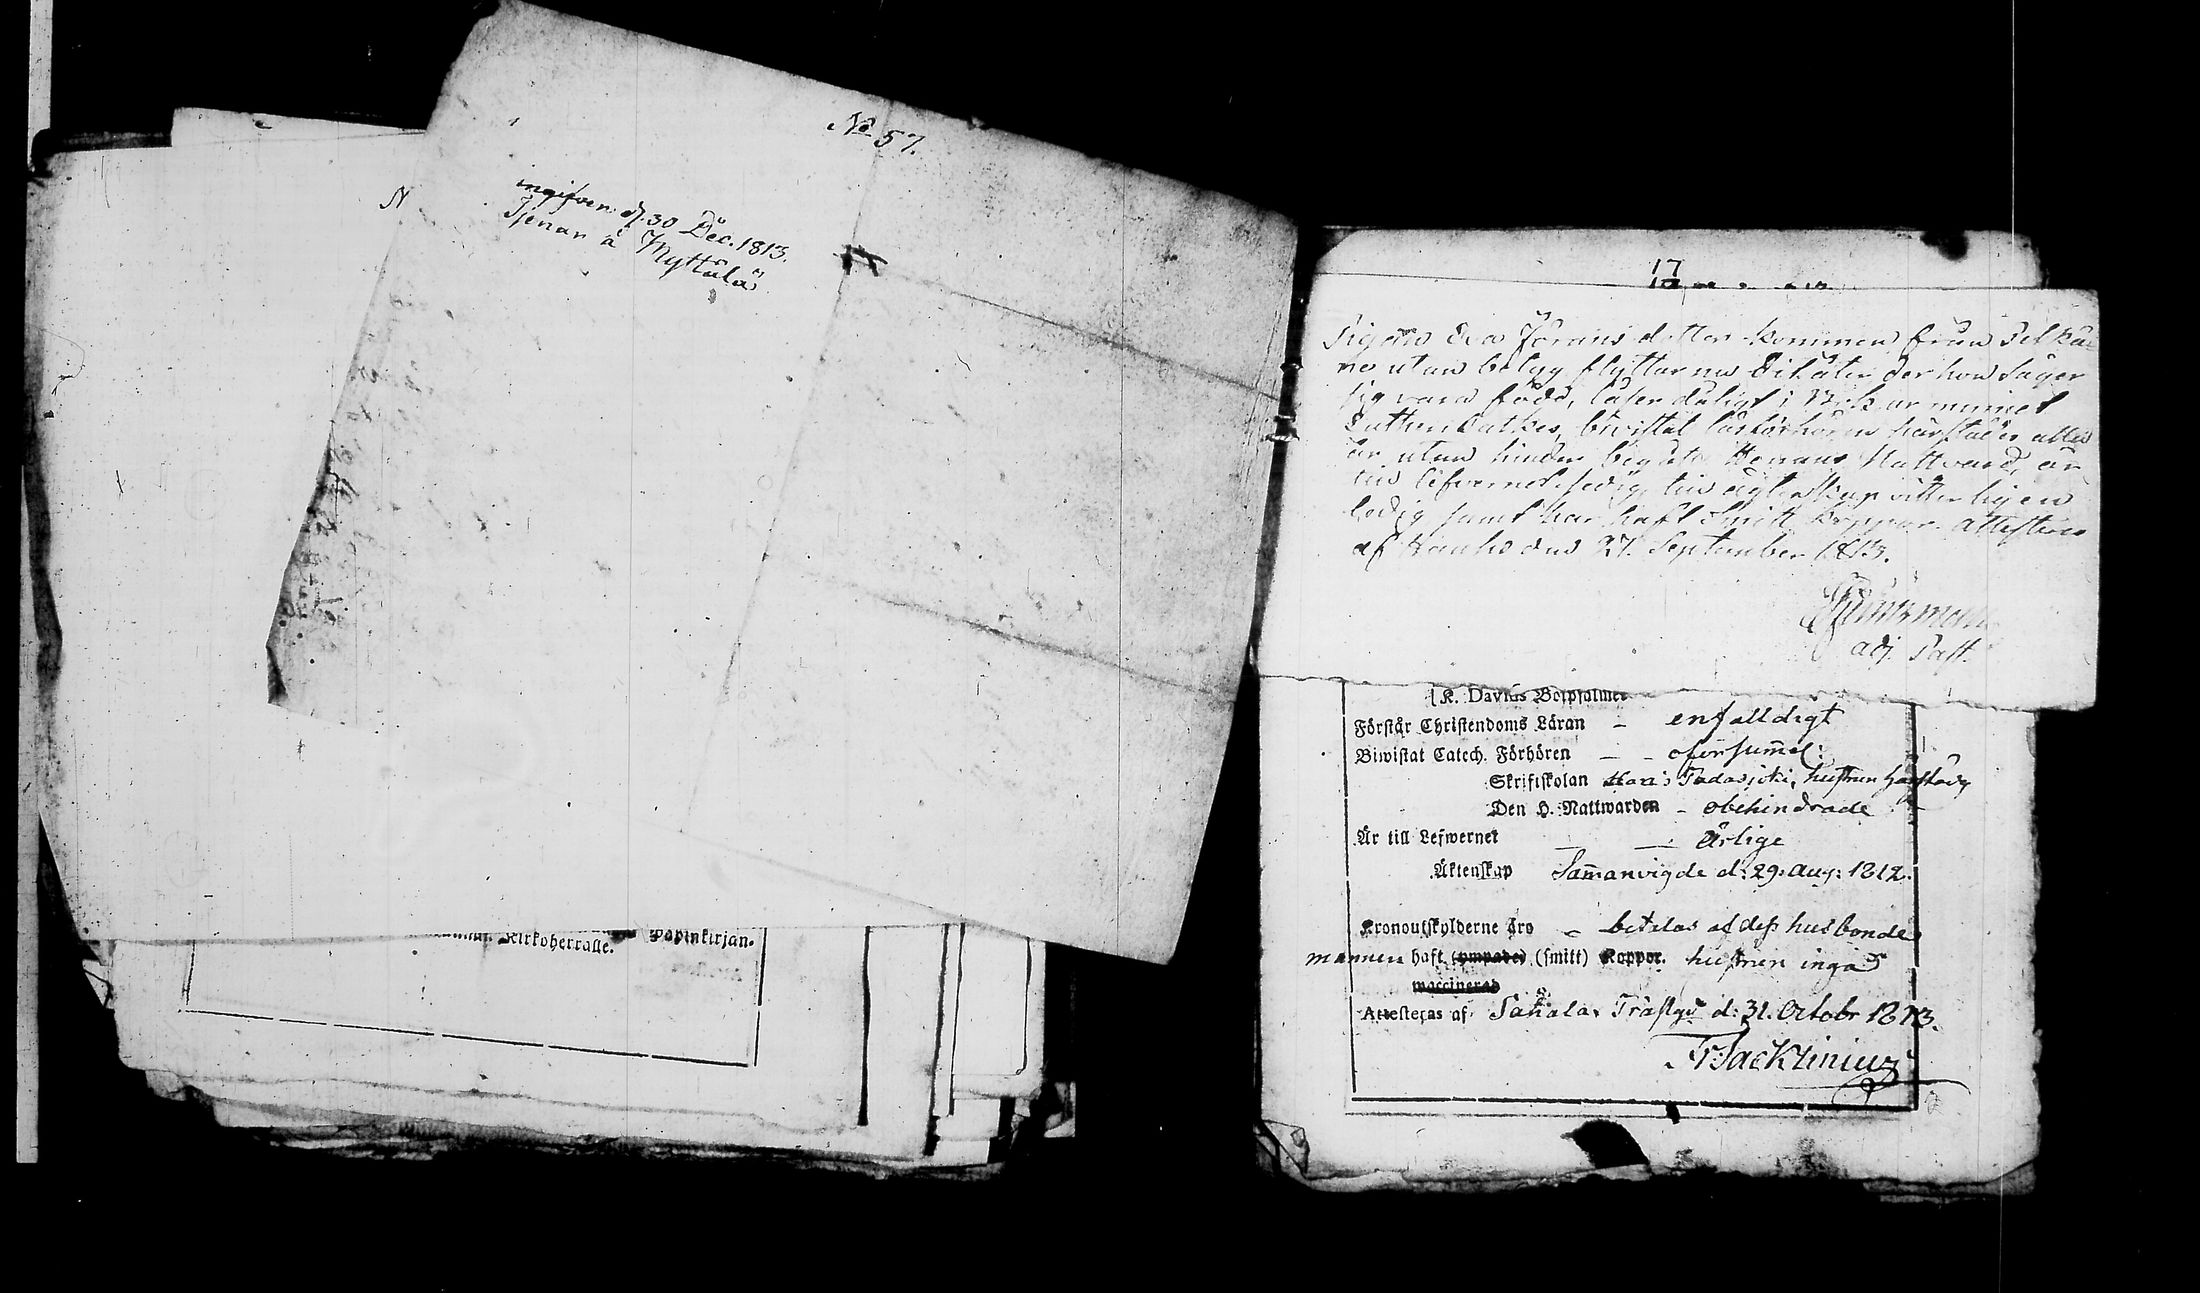 No 57.
ingifven d. 30 Dec. 1813.
Tjenar å Myttälä
N
Kirkoherralle. Papinkirjan.
17
Pigan Eva Jörans dotter kommen från Selkä
ne utan betyg flyttar nu tillåter der hon säger
sig vara född, läser dåligt i bok ur minnet
Lutheri Catkes, bivistat läsförhören härstädes alla
år utan hinder begått Herrans Nattvard, är
till lefvernet sedig, till ägtenskap vitterligen
ledig samt har haft Smitt koppor. Attesteras
af Hauho den 27. September 1813.
adj. Past.
K. Davids Botpsalmer
Förstår Christendoms Läran – enfalldigt
Biwistat Catech. Förhören – – oförsummel:
Skriftskolan hustrun härstädes
Den H. Nattwarden – obehindrade
Är till Lefwernet – – ärlige
Äktenskap Sam̄anvigde d: 29. Aug: 1812.
Kronoutskylderne äro – betalas af dess husbonde
mannen haft (ympade) (smitt) Koppor. hustrun inga
waccinerad
Attesteras af Sahala. Träsk d: 31. Octobr 1813.